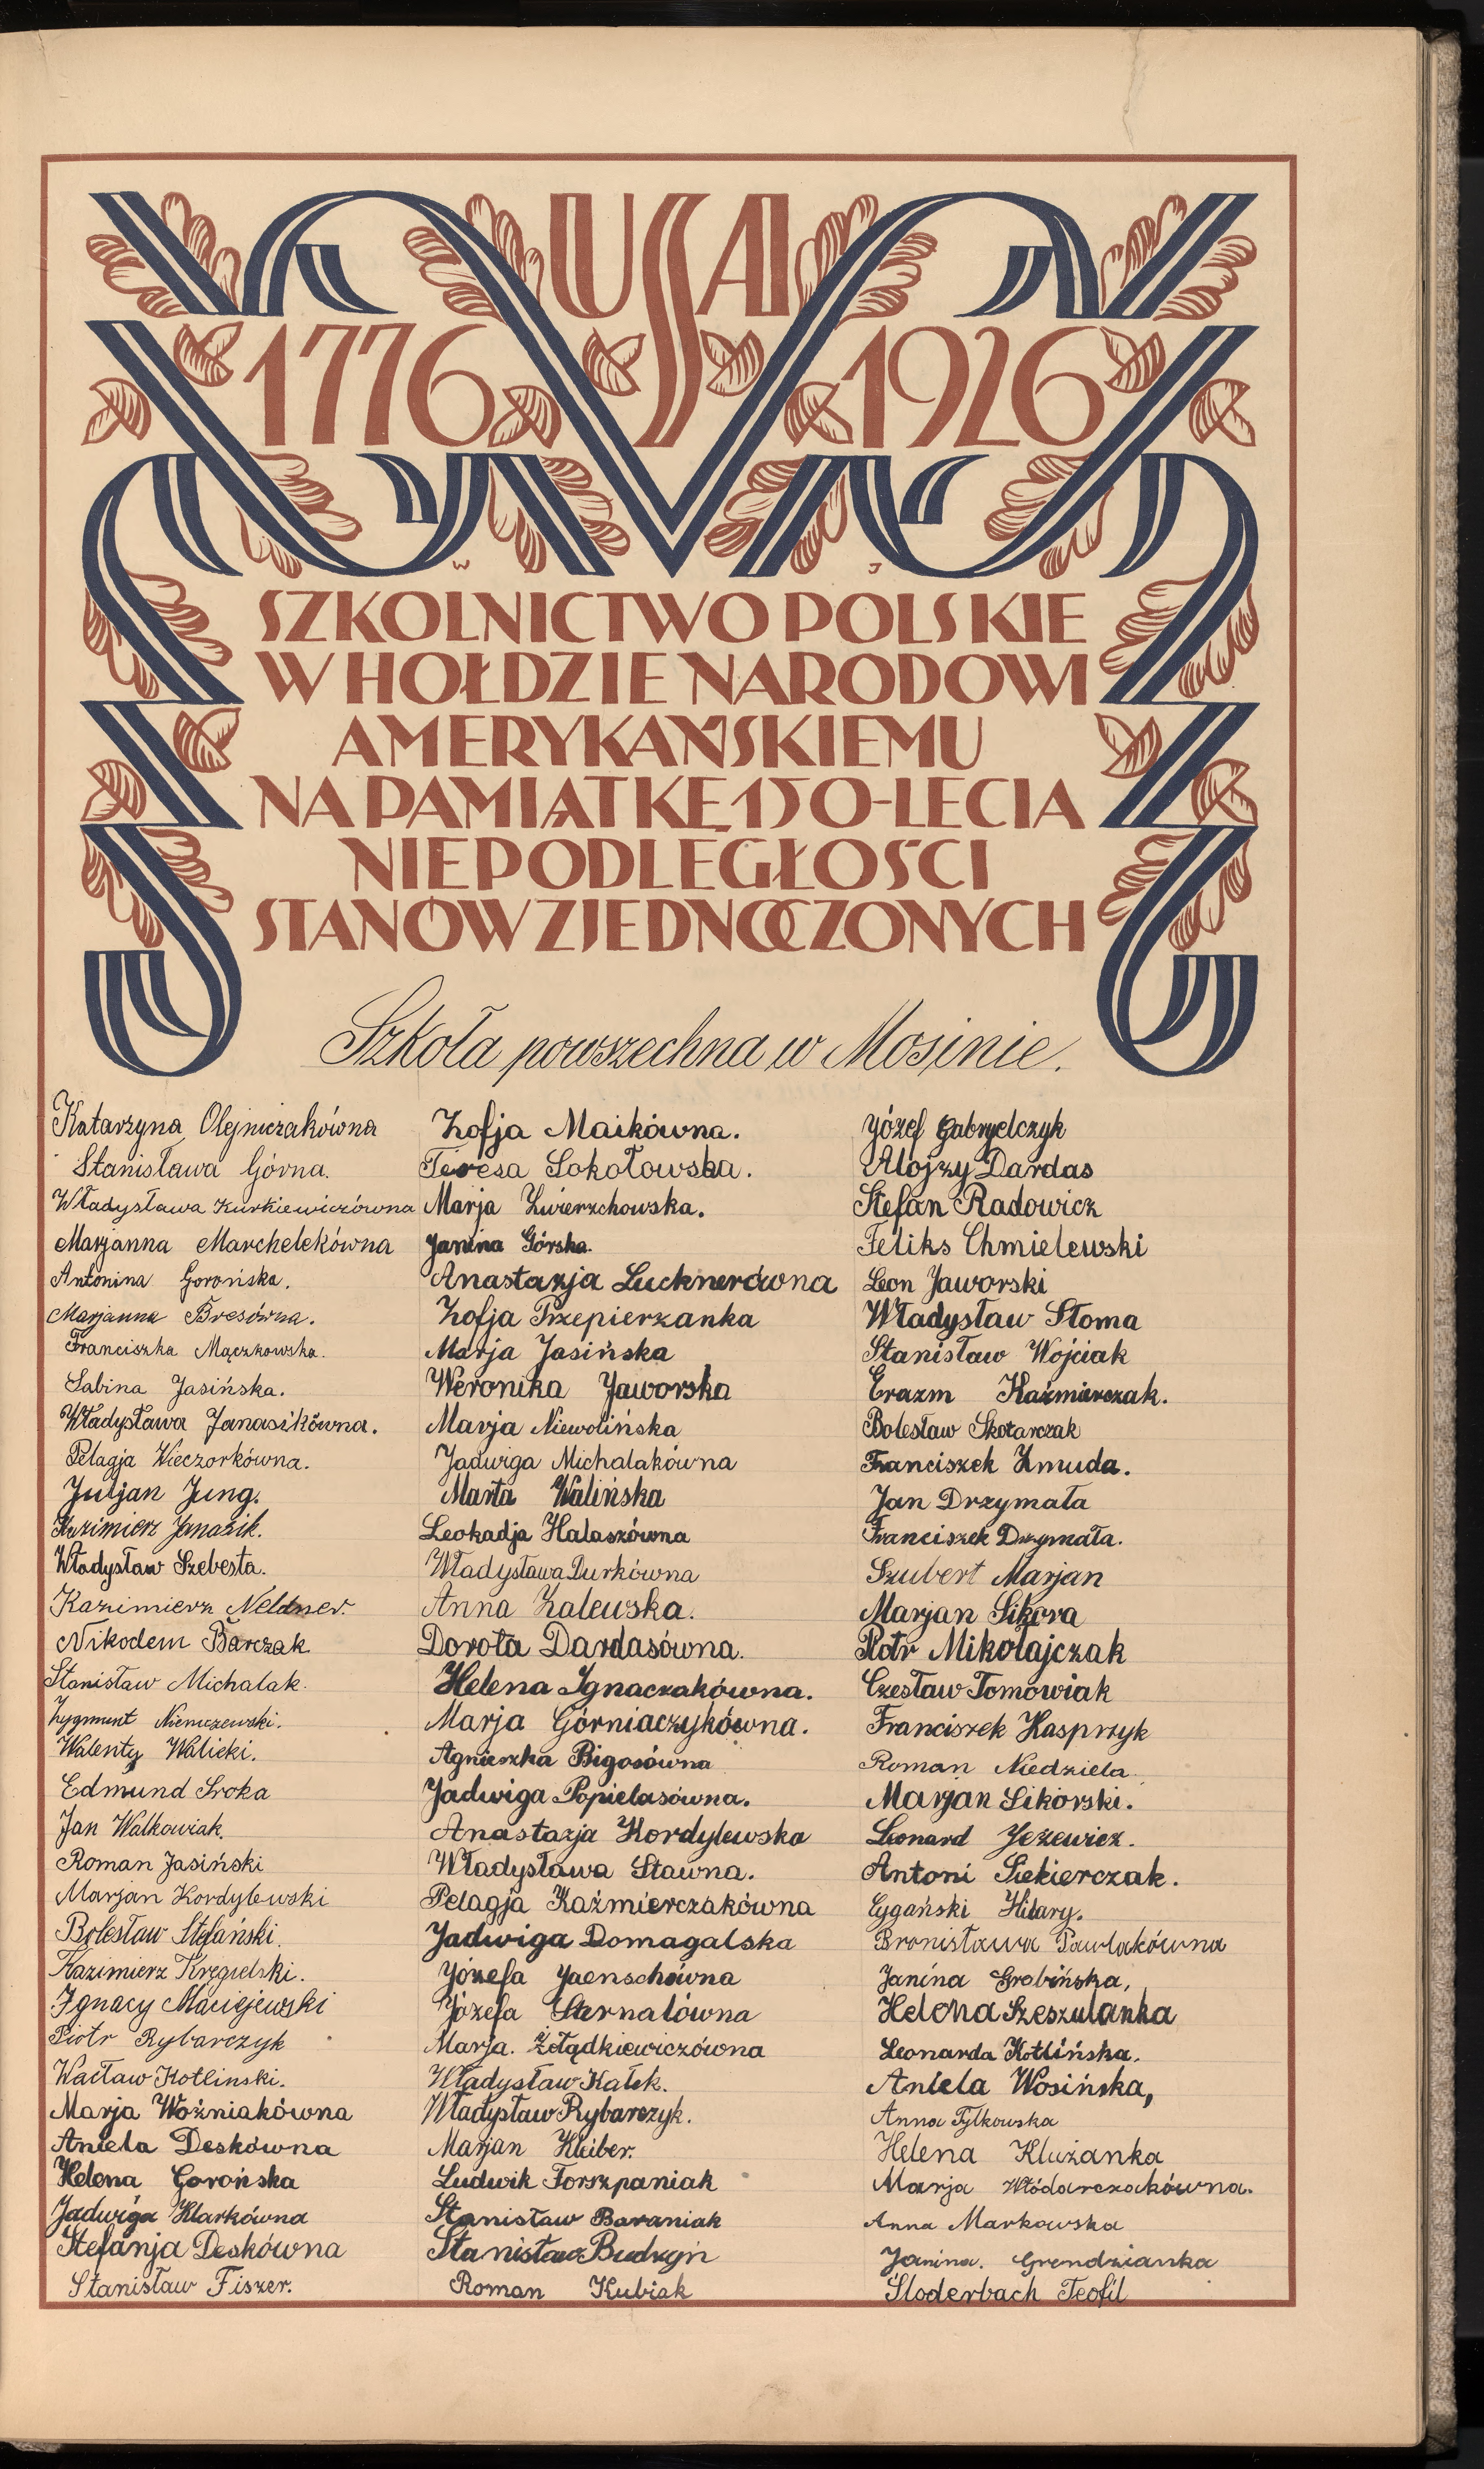 USA
1776 1926
W J
SZKOLNICTWO POLSKIE
W HOŁDZIE NARODOWI
AMERYKAŃSKIEMU
NA PAMIĄTKĘ 150-LECIA
NIEPODLEGŁOŚCI
STANÓW ZJEDNOCZONYCH
Szkoła powszechna w Mosinie.
Katarzyna Olejniczakówna
Stanisława Górna.
Władysława Kurkiewiczówna
Marjanna Marchelekówna
Antonina Gorońska.
Marjanna Bresówna.
Franciszka Mączkowska.
Sabina Jasińska.
Władysława Janasikówna.
Pelagja Wieczorkówna.
Juljan Jung.
Kazimierz Janasik.
Władysław Szebesta.
Kazimierz Neldner.
Nikodem Barczak
Stanisław Michalak.
Zygmunt Niemczewski.
Walenty Walicki.
Edmund Sroka
Jan Walkowiak.
Roman Jasiński
Marjan Kordylewski
Bolesław Stefański.
Kazimierz Kręgielski.
Ignacy Maciejewski
Piotr Rybarczyk
Wacław Kotlinski.
Marja Woźniakówna
Aniela Deskówna
Helena Gorońska
Jadwiga Klarkówna
Stefanja Deskówna
Stanisław Fiszer.
Zofja Maikówna.
Teresa Sokołowska.
Marja Zwierzchowska.
Janina Górska.
Anastazja Lucknerówna
Zofja Przepierzanka
Marja Jasińska
Weronika Jaworska
Marja Niewolińska
Jadwiga Michalakówna
Marta Walińska
Leokadja Halaszówna
Władysława Durkówna
Anna Zalewska.
Dorota Dardasówna.
Helena Ignaczakówna.
Marja Górniaczykówna.
Agnieszka Bigosówna
Jadwiga Popielasówna.
Anastazja Kordylewska
Władysława Stawna.
Pelagja Kaźmierczakówna
Jadwiga Domagalska
Józefa Jaenschówna
Józefa Sternalówna
Marja. Żołądkiewiczówna
Władysław Kałek.
Władysław Rybarczyk.
Marjan Kleiber.
Ludwik Forszpaniak
Stanisław Baraniak
Stanisław Budzyń
Roman Kubiak
Józef Gabryelczyk
Alojzy Dardas
Stefan Radowicz
Feliks Chmielewski
Leon Jaworski
Władysław Słoma
Stanisław Wojciak
Erazm Kaźmierczak.
Bolesław Skotarczak
Franciszek Żmuda.
Jan Drzymała
Franciszek Drzymała.
Szubert Marjan
Marjan Sikora
Piotr Mikołajczak
Czesław Tomowiak
Franciszek Kasprzyk
Roman Niedziela.
Marjan Sikorski.
Leonard Jeżewicz.
Antoni Siekierczak.
Cygański Hilary.
Bronisława Pawlakówna
Janina Grabińska,
Helena Szeszulanka
Leonarda Kotlińska.
Aniela Wosińska,
Anna Tylkowska
Helena Klużanka
Marja Włódarczakówna.
Anna Markowska
Janina. Grendzianka
Sloderbach Teofil